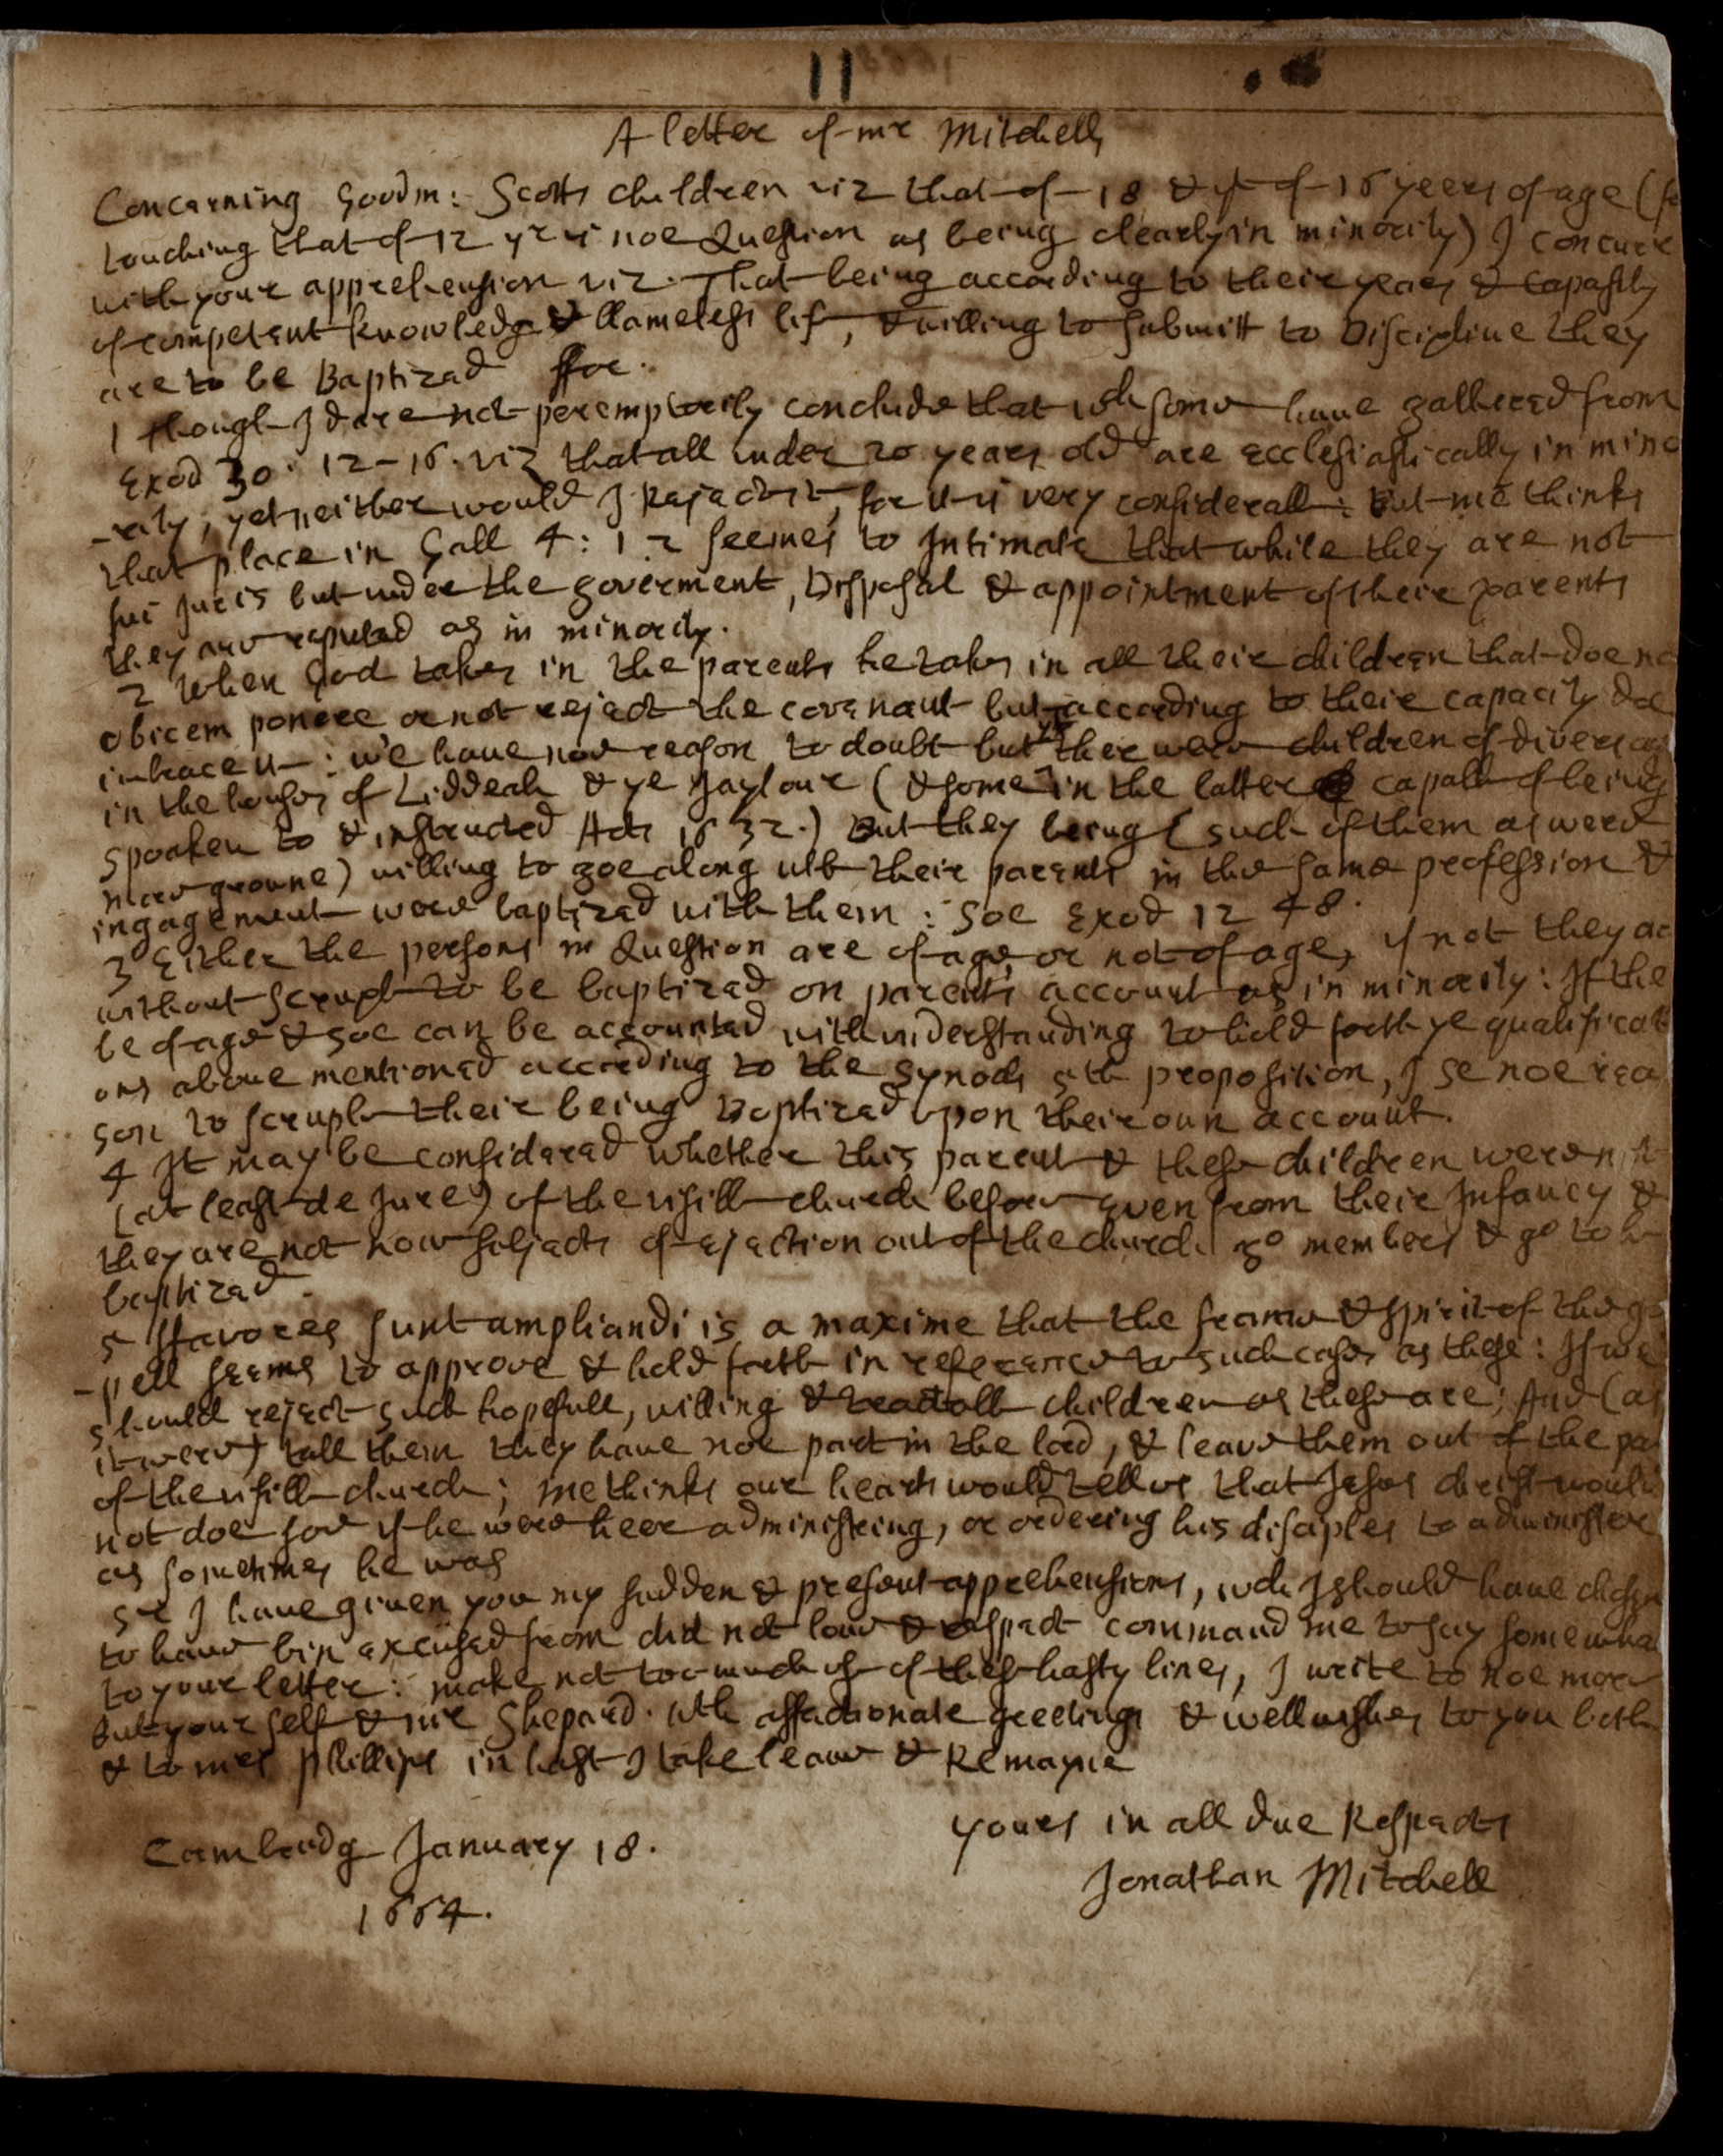 11
A letter of mr Mitchells
Concerning Goodm: Scotts children viz that of 18 & yt of 16 years of age (fo
touching that of 12 yrs is noe Question as being clearly in minority) I concurre
with your apprehension viz. That being according to their years & capasity
of competent knowledg & blameless life, & willing to submitt to Discipline they
are to be Baptized ffor.
1 though I dare not peremptorily conclude that wch some have gathered from
Exod 30. 12-16. viz that all under 20 years old are ecclesiastically in mino
-rity, yet neither would I Reject it, for it is very considerable: But me thinks
that place in Gall 4: 1 2 seemes to Intimate that while they are not
sui Juris but under the goverment, Disposal & appointment of their parents
they are reputed as in minority.
2 When God takes in the parents he takes in all their children that doe no
obicem ponere or not reject the covenant but according to their capacity doe
imbrace it: we have noe reason to doubt but yt ther were children of divers ag
in the houses of Liddeah & ye Jaylour (& some in the latter capable of being
spoaken to & instructed Acts 16 32.) But they being (such of them as were
more growne) willing to goe along wth their parents in the same profession &
ingagement were baptized with them: soe Exod 12 48.
3 Either the persons in Question are of age or not of age, if not they are
without scruple to be baptized on parents account as in minority: If the
be of age & soe can be accounted with understanding to hold forth ye qualificati
ons above mentioned according to the synods 5th proposition, I se noe rea
son to scruple their being Baptized upon their own account.
4 It may be considered whether this parent & these children were not
(at least de Jure) of the visible church before even from their Infancy &
they are not now subjects of ejection out of the church go members & go to be
baptized.
5 ffavores sunt ampliandi is a maxime that the frame & spirit of the go
-pell seems to approve & hold forth in reference to such cases as these: If we
should reject such hopefull, willing & teachable children as these are; And (as
it were) tell them they have noe part in the lord, & leave them out of the pa
of the visible church; me thinks our hearts would tell us that Jesus christ would
not doe soe if he were heer administring, or ordering his disciples to administer
as sometimes he was
Sr I have given you my sudden & present apprehensions, wch I should have chosen
to have bin excused from did not love & respect command me to say somewha
to your letter: make not too much use of these hasty lines, I write to noe more
but your self & mr Shepard. wth affectionate greetings & wellwishes to you both
& to mrs Phillips in hast I take leave & Remayne
yours in all due Respects
Jonathan Mitchell
Cambridg January 18.
1664.